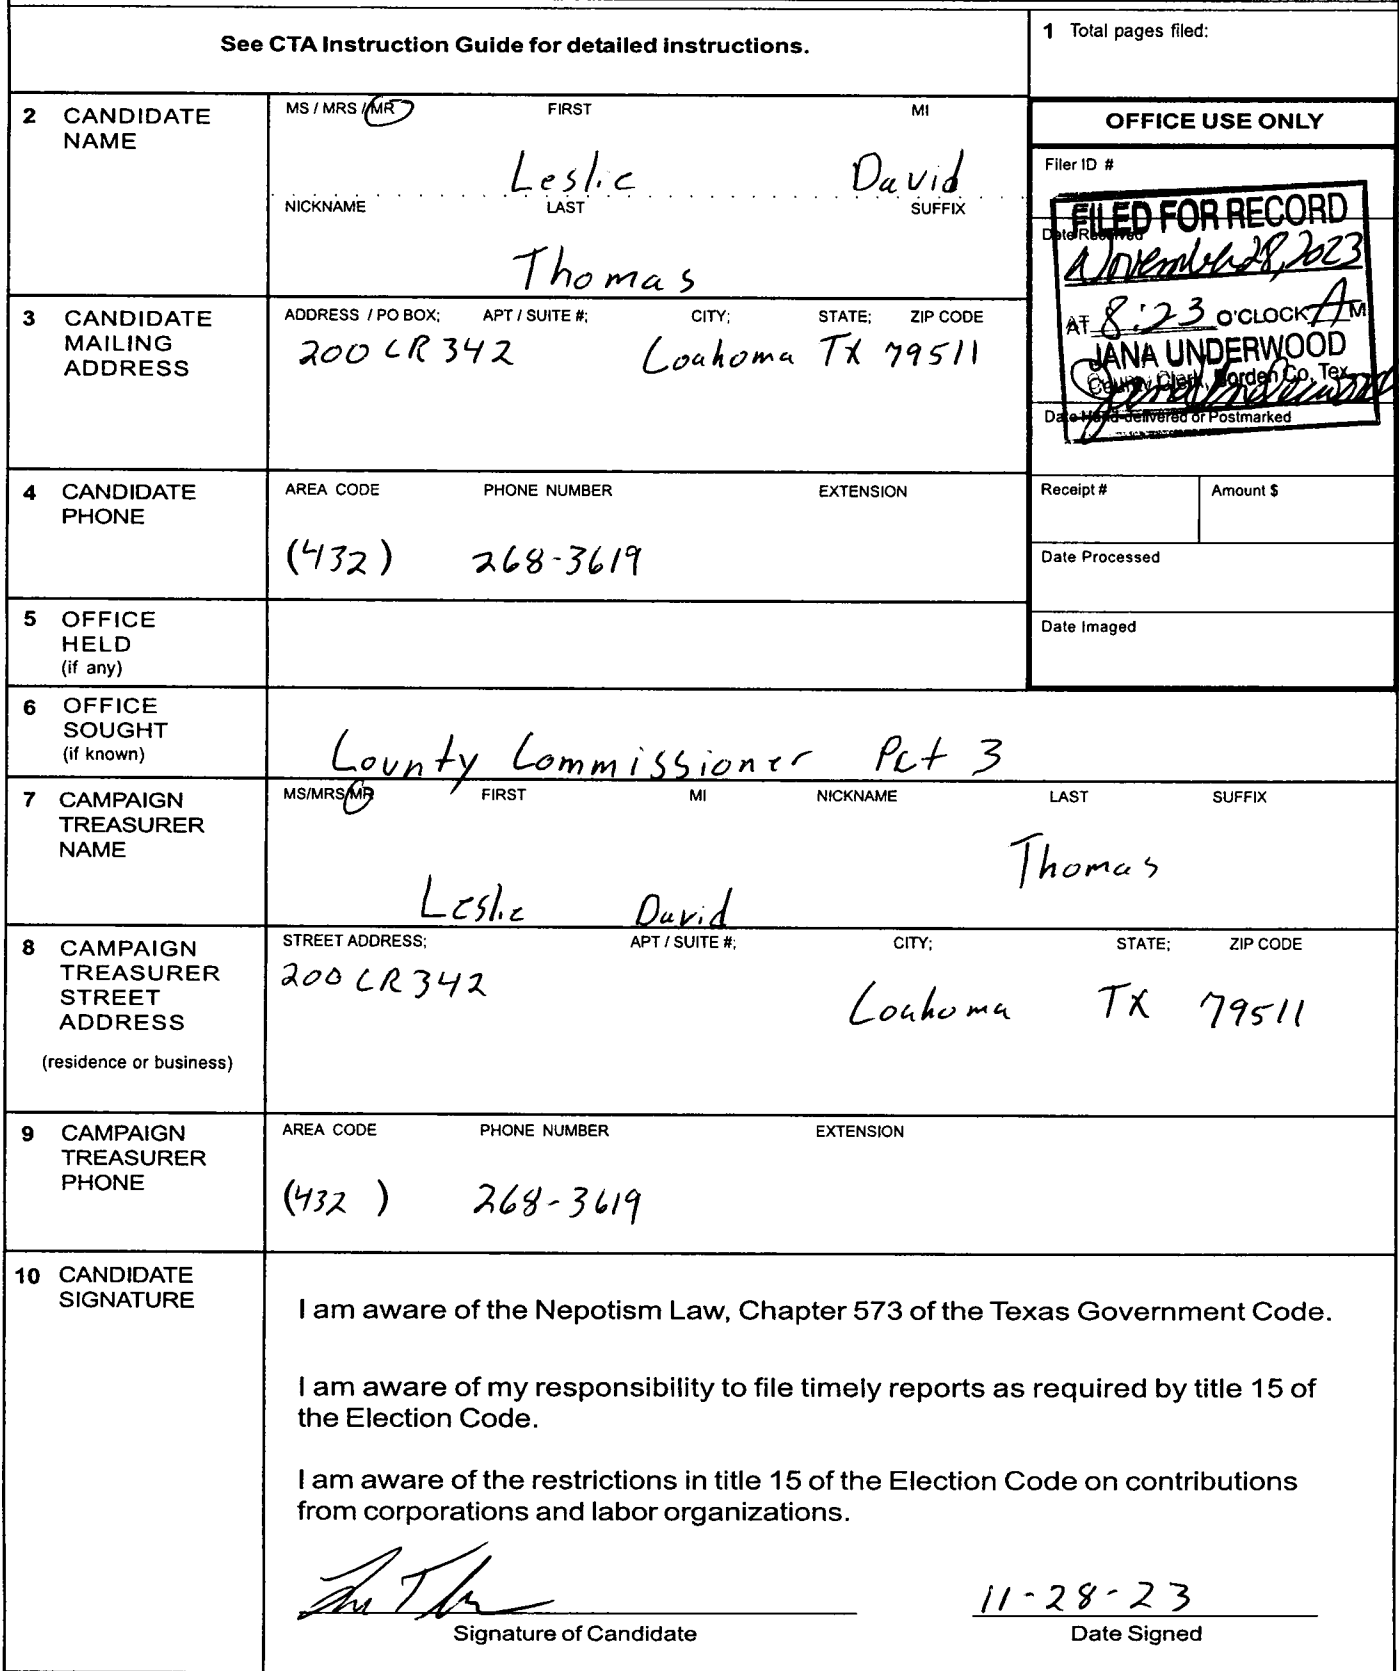 See CTA Instruction Guide for detailed instructions.
1 Total pages filed:
2 CANDIDATE NAME
MS / MRS / MR FIRST MI
Leslie David
NICKNAME LAST SUFFIX
Thomas
OFFICE USE ONLY
Filer ID #
FILED FOR RECORD
Date Received
November 28, 2023
AT 8:23 O'CLOCK A M
JANA UNDERWOOD
County Clerk, Borden Co, Tex
Jana Underwood
Date Hand-delivered or Postmarked
3 CANDIDATE MAILING ADDRESS
ADDRESS / PO BOX; APT / SUITE #; CITY; STATE; ZIP CODE
200 CR 342 Coahoma TX 79511
4 CANDIDATE PHONE
AREA CODE PHONE NUMBER EXTENSION
(432) 268-3619
Receipt # Amount $
Date Processed
Date Imaged
5 OFFICE HELD (if any)
6 OFFICE SOUGHT (if known)
County Commissioner Pct 3
7 CAMPAIGN TREASURER NAME
MS/MRS/MR FIRST MI NICKNAME LAST SUFFIX
Leslie David Thomas
8 CAMPAIGN TREASURER STREET ADDRESS
(residence or business)
STREET ADDRESS; APT / SUITE #; CITY; STATE; ZIP CODE
200 CR 342 Coahoma TX 79511
9 CAMPAIGN TREASURER PHONE
AREA CODE PHONE NUMBER EXTENSION
(432 ) 268-3619
10 CANDIDATE SIGNATURE
I am aware of the Nepotism Law, Chapter 573 of the Texas Government Code.
I am aware of my responsibility to file timely reports as required by title 15 of
the Election Code.
I am aware of the restrictions in title 15 of the Election Code on contributions
from corporations and labor organizations.
11-28-23
Signature of Candidate Date Signed